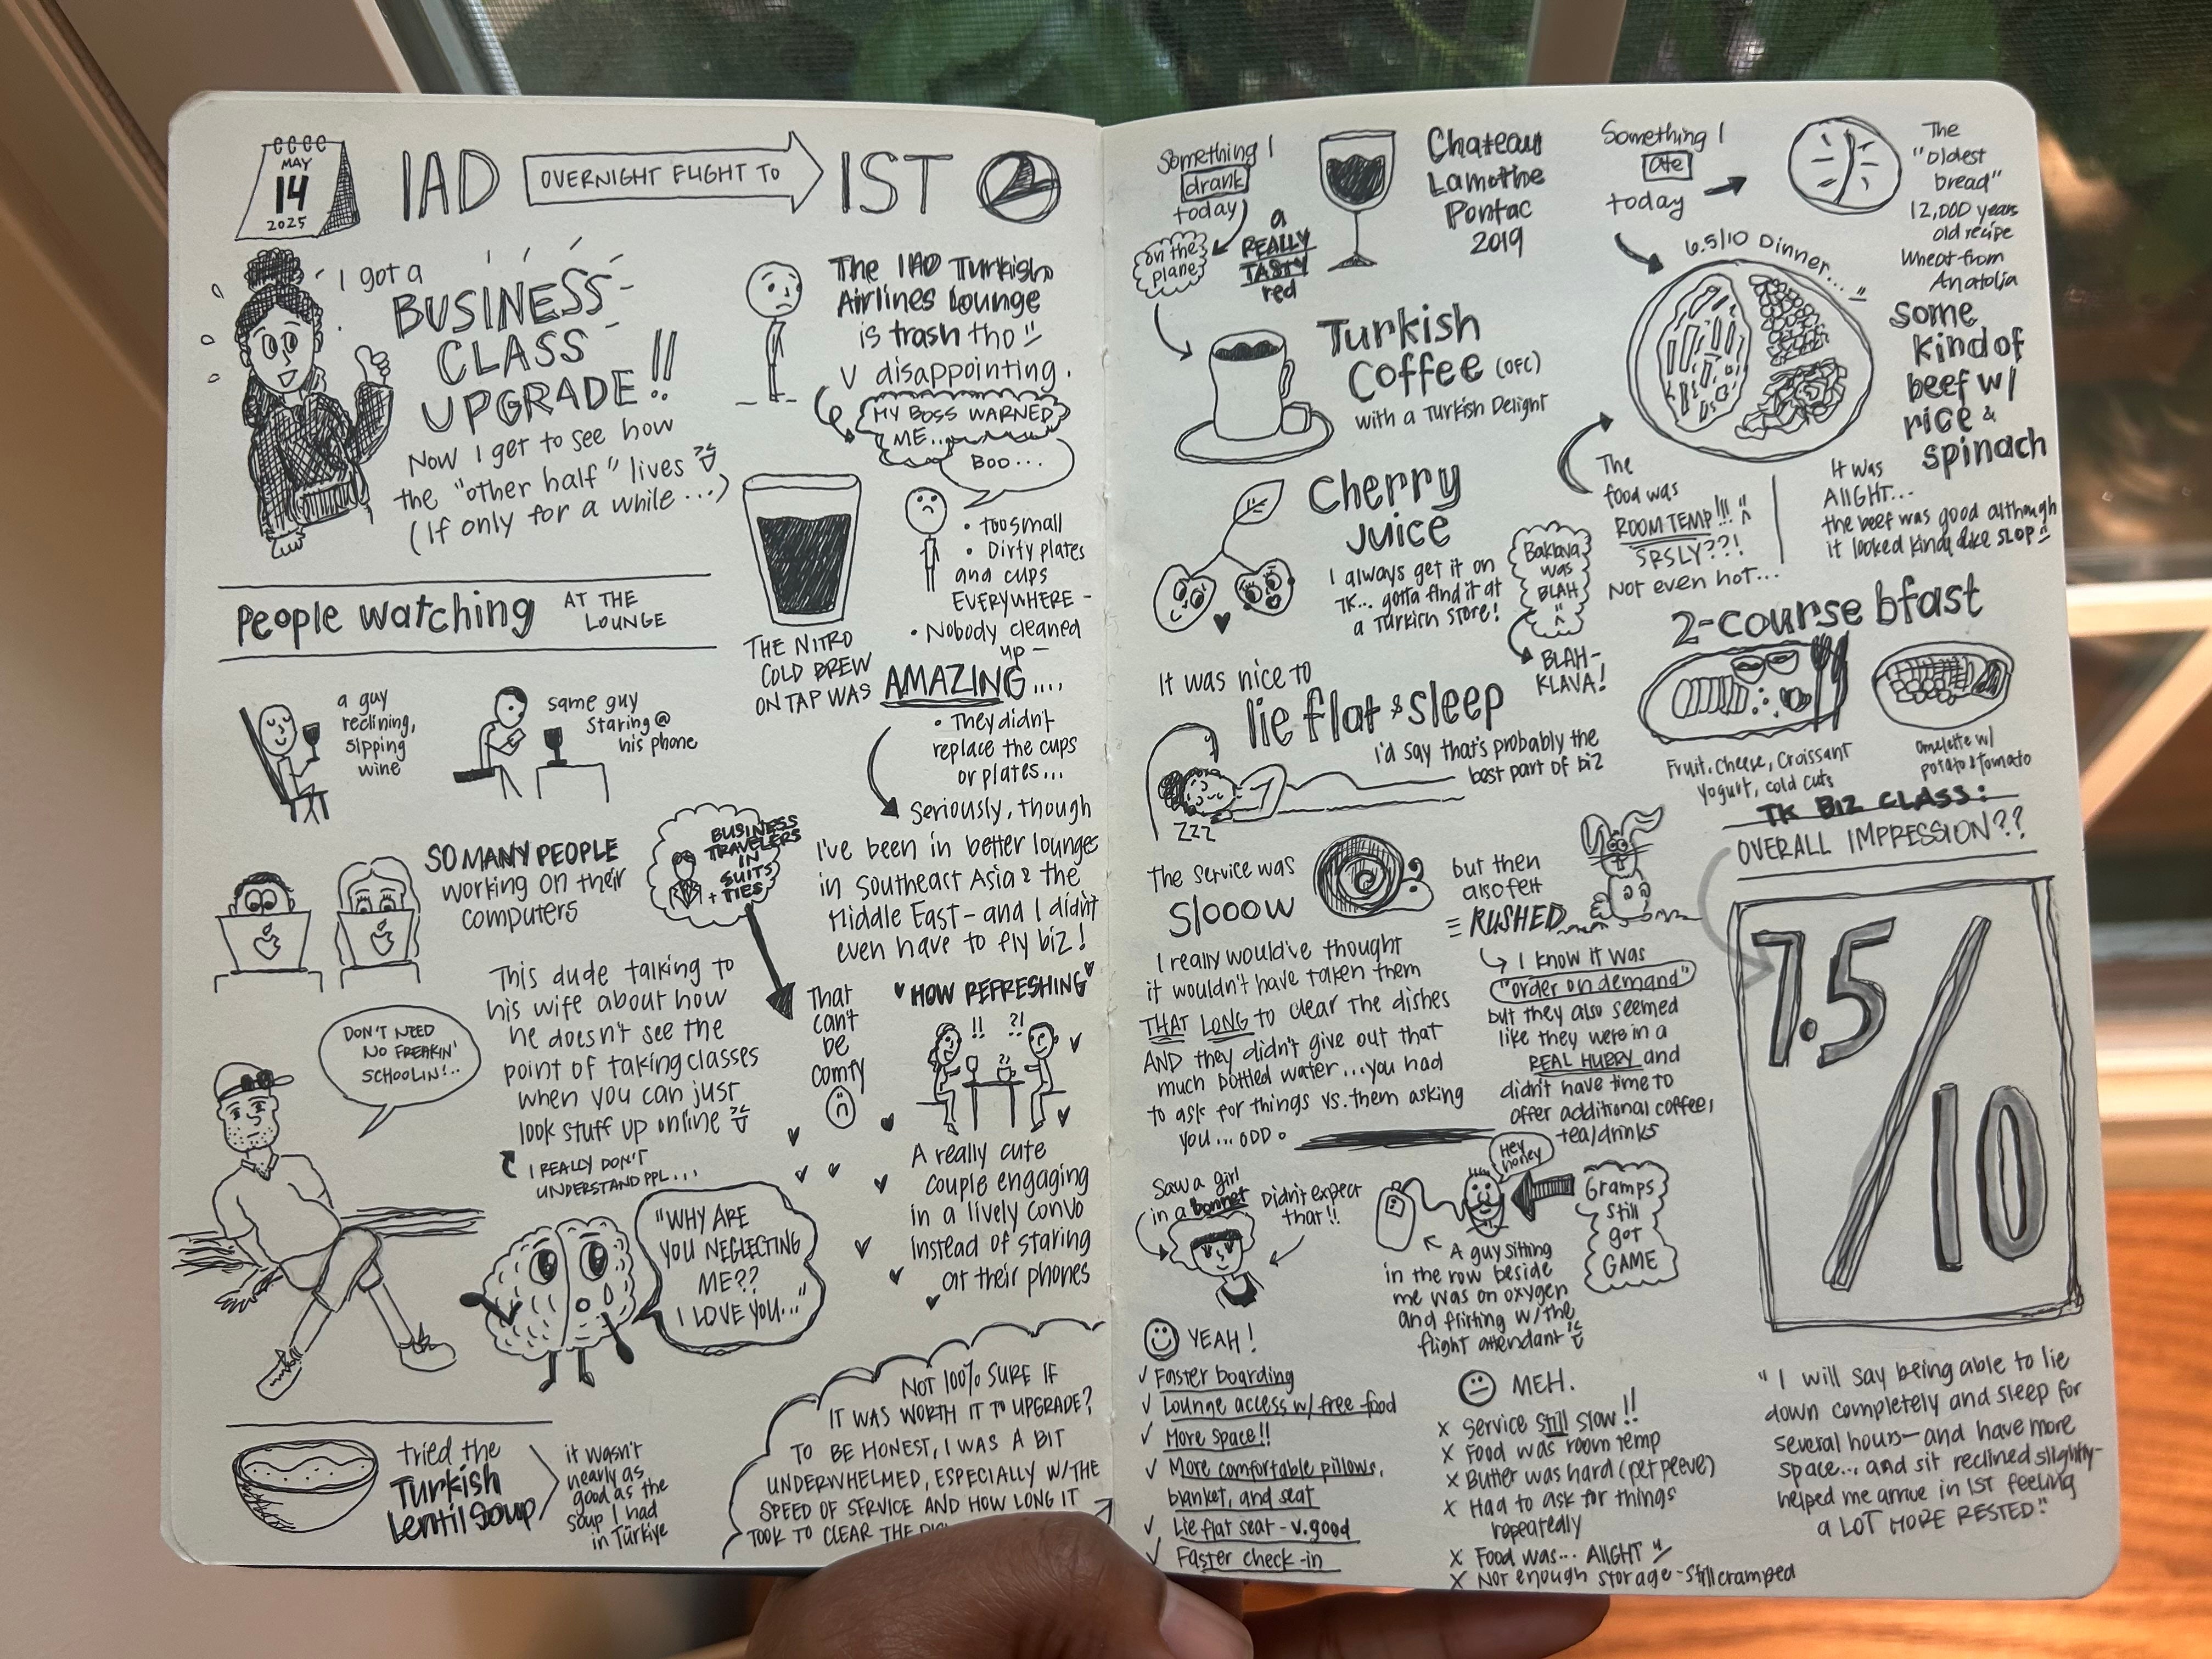 MAY
14
2025
IAD
OVERNIGHT FLIGHT TO
IST
I got a
BUSINESS
CLASS
UPGRADE!!
Now I get to see how
the "other half" lives
(If only for a while...)
The IAD Turkish
Airlines Lounge
is trash tho
V disappointing.
MY BOSS WARNED
ME...
BOO...
• too small
• Dirty plates
and cups
EVERYWHERE -
• Nobody cleaned
up -
THE NITRO
COLD BREW
ON TAP WAS AMAZING....
• They didn't
replace the cups
or plates...
Seriously, though
I've been in better lounges
in Southeast Asia & the
Middle East - and I didn't
even have to fly biz!
People watching
AT THE
LOUNGE
a guy
reclining,
sipping
wine
same guy
staring @
his phone
SO MANY PEOPLE
working on their
computers
BUSINESS
TRAVELERS
IN
SUITS
+ TIES
That
can't
be
comfy
DON'T NEED
NO FREAKIN'
SCHOOLIN'..
This dude talking to
his wife about how
he doesn't see the
point of taking classes
when you can just
look stuff up online
I REALLY DON'T
UNDERSTAND PPL...
"WHY ARE
YOU NEGLECTING
ME??
I LOVE YOU..."
HOW REFRESHING
!! ?!
A really cute
couple engaging
in a lively convo
instead of staring
at their phones
tried the
Turkish
Lentil Soup
it wasn't
nearly as
good as the
soup I had
in Türkiye
NOT 100% SURE IF
IT WAS WORTH IT TO UPGRADE?
TO BE HONEST, I WAS A BIT
UNDERWHELMED, ESPECIALLY W/THE
SPEED OF SERVICE AND HOW LONG IT
TOOK TO CLEAR THE
Something I
drank
today
on the
plane
a
REALLY
TASTY
red
Chateau
Lamothe
Pontac
2019
Turkish
Coffee (OFC)
with a Turkish Delight
Cherry
Juice
I always get it on
TK... gotta find it at
a Turkish store!
Something I
ate
today
The
"oldest
bread"
12,000 years
old recipe
Wheat from
Anatolia
6.5/10 Dinner...
some
kind of
beef w/
rice &
spinach
The
food was
ROOM TEMP!!!
SRSLY??!
Not even hot...
It was
AIIGHT...
the beef was good although
it looked kinda like SLOP
Baklava
was
BLAH
BLAH-
KLAVA!
2-course bfast
Fruit, Cheese, Croissant
Yogurt, cold cuts
omelette w/
potato & tomato
It was nice to
lie flat & sleep
I'd say that's probably the
best part of biz
ZZZ
The service was
SLOOOW
but then
also felt
RUSHED
I really would've thought
it wouldn't have taken them
THAT LONG to clear the dishes
AND they didn't give out that
much bottled water...you had
to ask for things vs. them asking
you... ODD.
I know it was
"order on demand"
but they also seemed
like they were in a
REAL HURRY and
didn't have time to
offer additional coffee,
tea/drinks
Saw a girl
in a bonnet
Didn't expect
that!!
Hey
honey
Gramps
still
got
GAME
A guy sitting
in the row beside
me was on oxygen
and flirting w/the
flight attendant
TK BIZ CLASS:
OVERALL IMPRESSION??
7.5/10
YEAH!
✓ Faster boarding
✓ Lounge access w/ free food
✓ More space!!
✓ More comfortable pillows,
blanket, and seat
✓ Lie flat seat - v.good
✓ Faster check-in
MEH.
X Service still slow!!
X Food was room temp
X Butter was hard (pet peeve)
X Had to ask for things
repeatedly
X Food was... AIIGHT
X Not enough storage - still cramped
"I will say being able to lie
down completely and sleep for
several hours - and have more
space... and sit reclined slightly -
helped me arrive in IST feeling
a LOT MORE RESTED."